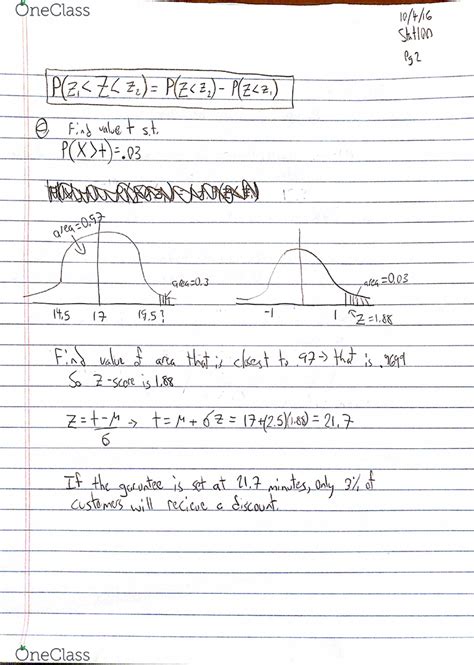 OneClass
10/4/16
Stat 1100
Pg 2
P(z₁ < Z < z₂) = P(Z < z₂) - P(Z < z₁)
Find value t s.t.
P(X > t) = .03
area = 0.97
area = 0.3
area = 0.03
14.5 17 19.5 ?
-1 1 Z = 1.88
Find value of area that is closest to .97 → that is .9699
So Z-score is 1.88
Z = t - μ / σ → t = μ + σZ = 17 + (2.5)(1.88) = 21.7
If the garuntee is set at 21.7 minutes, only 3% of
customers will recieve a discount.
OneClass